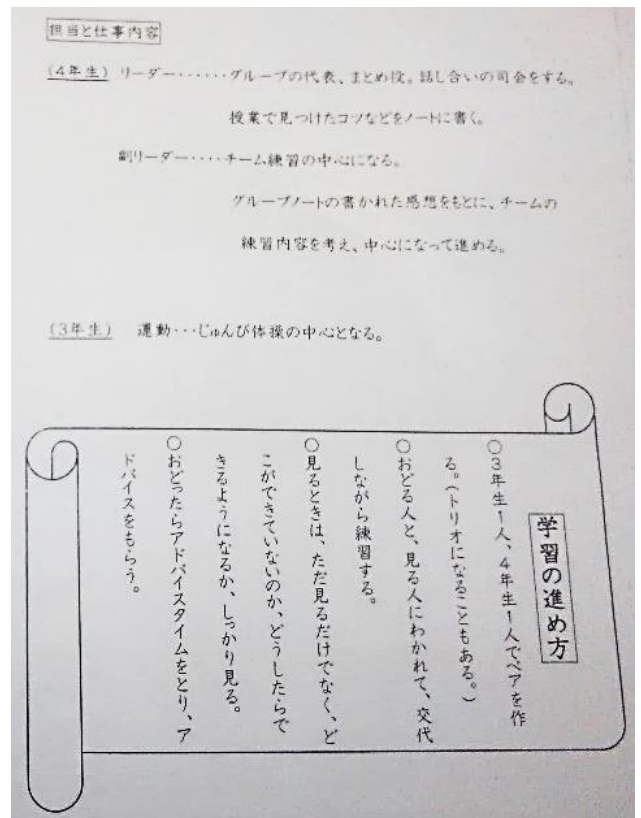 担当と仕事内容
(4年生) リーダー‥‥‥グループの代表、まとめ役。話し合いの司会をする。
授業で見つけたコツなどをノートに書く。
副リーダー‥‥チーム練習の中心になる。
グループノートの書かれた感想をもとに、チームの
練習内容を考え、中心になって進める。
(3年生) 運動‥・じゅんび体操の中心となる。
学習の進め方
○3年生1人、4年生1人でペアを作
る。(トリオになることもある。)
○おどる人と、見る人にわかれて、交代
しながら練習する。
○見るときは、ただ見るだけでなく、ど
こができていないのか、どうしたらで
きるようになるか、しっかり見る。
○おどったらアドバイスタイムをとり、ア
ドバイスをもらう。